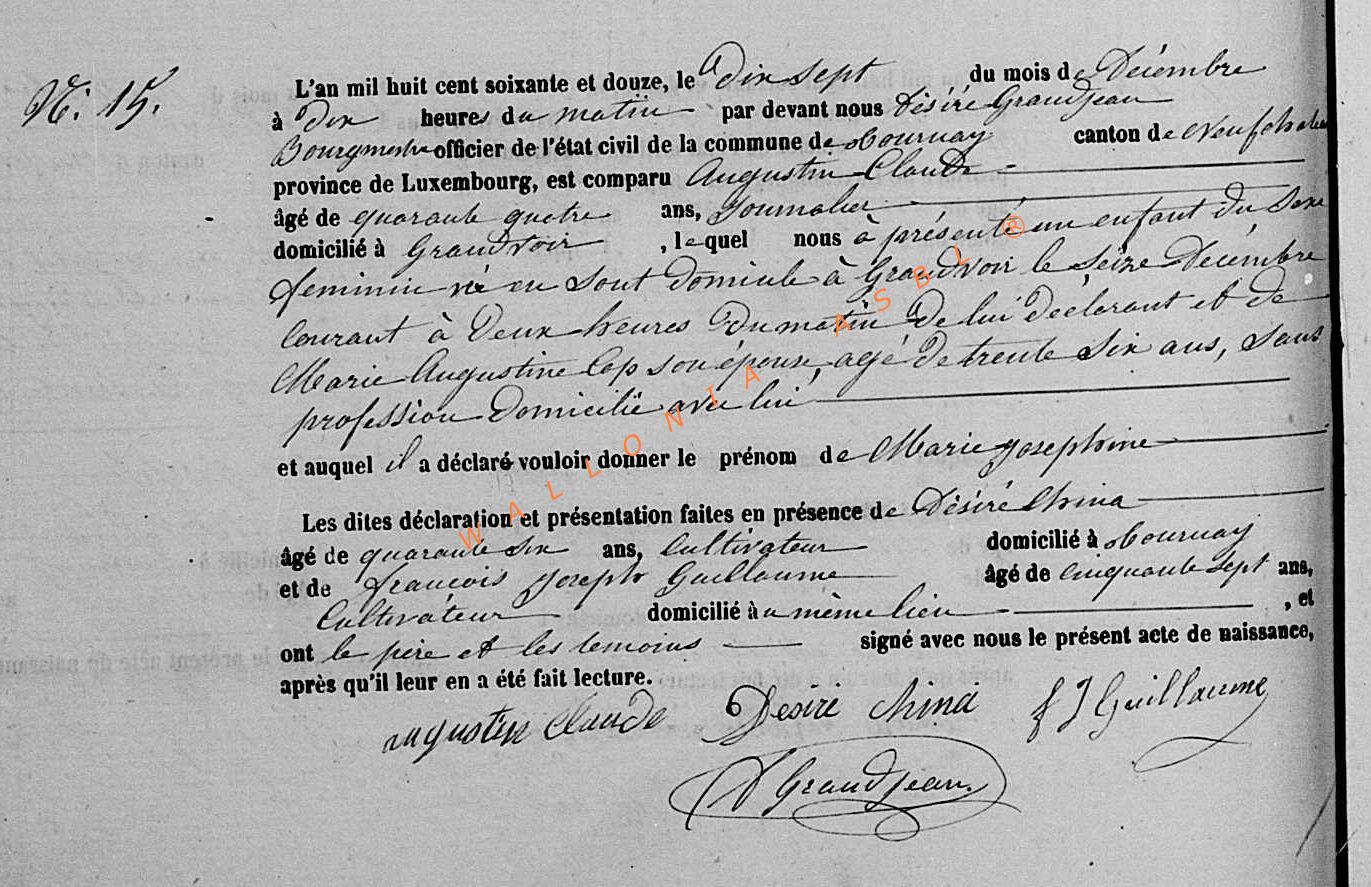 N: 15.
L'an mil huit cent soixante et douze, le dix sept du mois de Décembre
à Dix heures du matin par devant nous Désiré Grandjean
Bourgmestre officier de l'état civil de la commune de Tournay canton de Neufchateau
province de Luxembourg, est comparu Augustin Claude
âgé de quarante quatre ans, Journalier
domicilié à Grandvoir , lequel nous à présenté un enfant du sexe
feminin né en sont domicile à Grandvoir le seize Décembre
courant à Deux heures du matin de lui déclarant et de
Marie Augustine Cop son épouse, agé de trente six ans, sans
profession domicilié avec lui
et auquel il a déclaré vouloir donner le prénom de Marie Josephine
Les dites déclaration et présentation faites en présence de Désiré China
âgé de quarante six ans, Cultivateur domicilié à Tournay
et de francois Joseph Guillaume âgé de cinquante sept ans,
Cultivateur domicilié au même lieu , et
ont le père et les temoins signé avec nous le présent acte de naissance,
après qu'il leur en a été fait lecture.
augustin claude Desiré china f J Guillaume
D Grandjean
WALLONIA ASBL ®